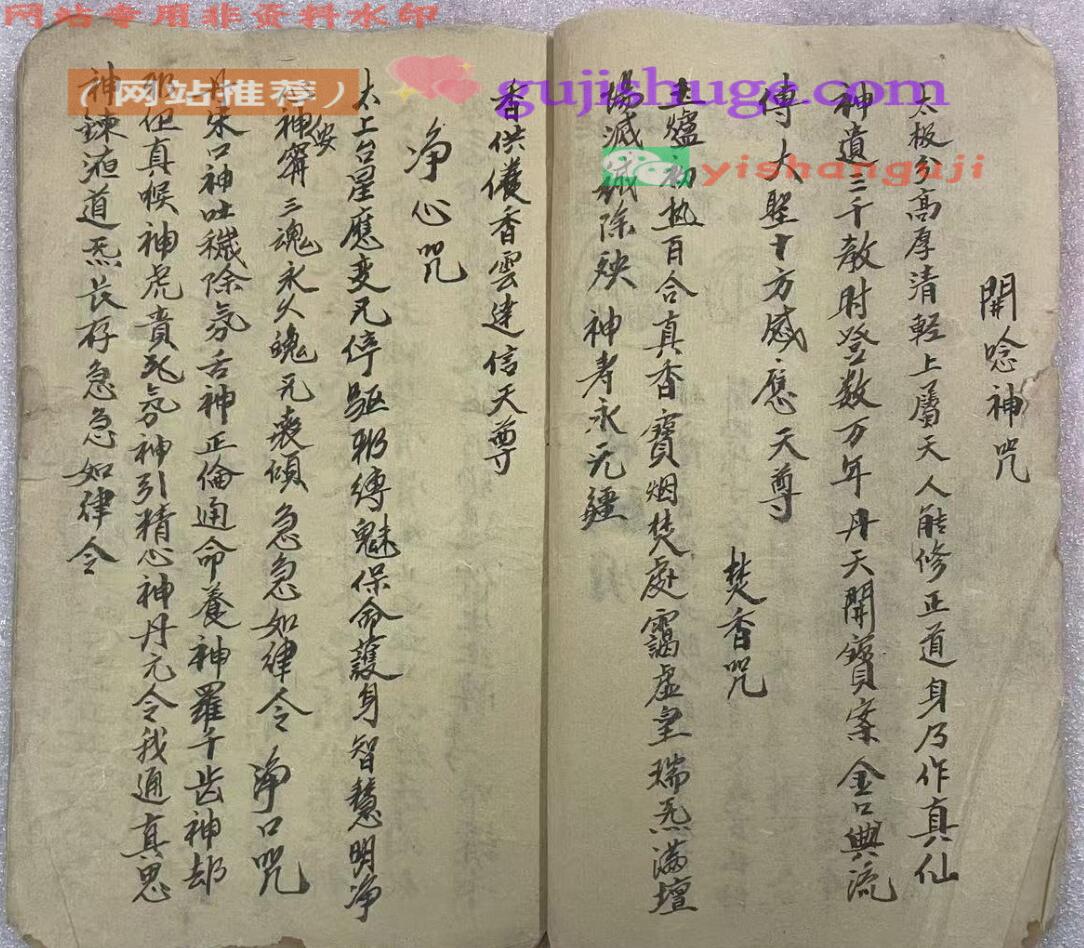 网站专用非资料水印
(网站推荐)
gujishuge.com
yishanguji
開唸神咒
太极分高厚清輕上屬天人能修正道身乃作真仙
神遺三千教时登数万年丹天開寶案金口與流
傳大聖十方感應天尊 焚香咒
爐初热百合真香寳烟焚處靄虚皇瑞炁满壇
場滅除殃神寿永无疆
香供養香雲達信天尊
净心咒
太上台星應变无停驱邪缚魅保命護身智慧明净
神安寧三魂永久魄无丧傾急急如律令 净口咒
丹朱口神吐穢除氛舌神正倫通命養神羅千齿神却
邪但真喉神虎賁死氛神引精心神丹元令我通真思
神鍊液道炁长存急急如律令